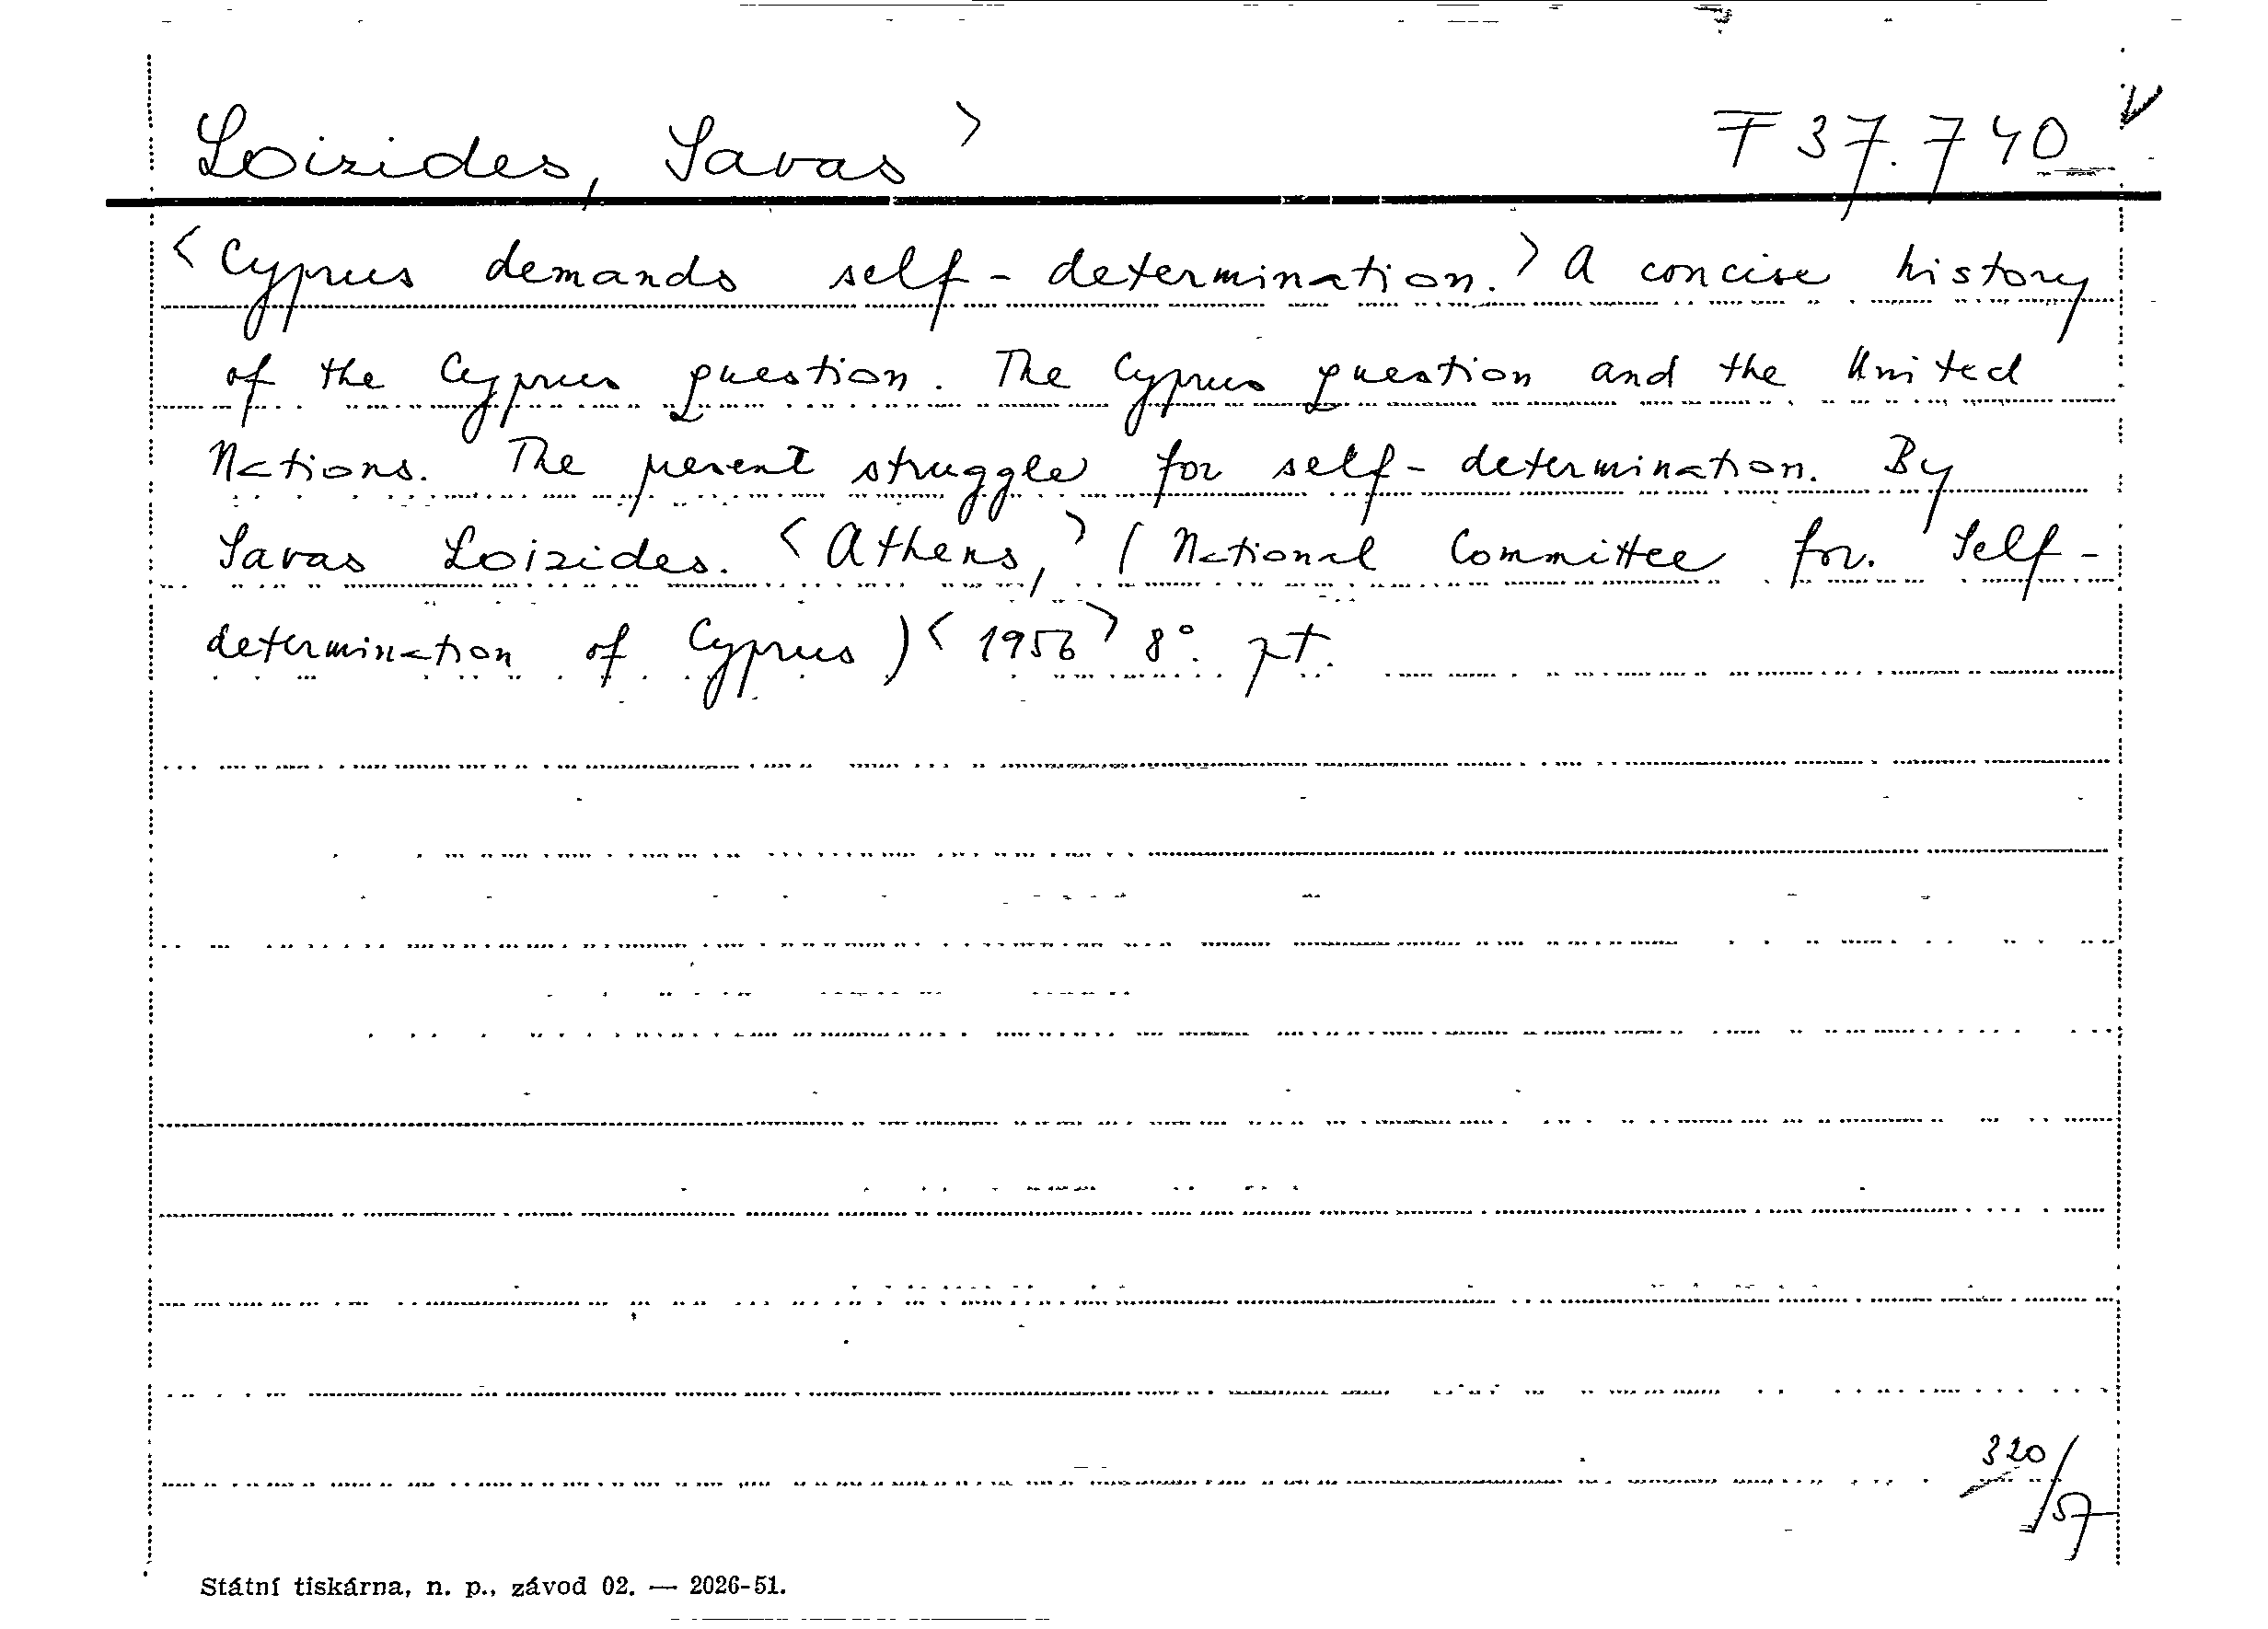 Loizides, Savas > F 37.740 V
<Cyprus demands self-determination.> A concise history
of the Cyprus question. The Cyprus question and the United
Nations. The present struggle for self-determination. By
Savas Loizides. <Athens,> (National Committee for Self-
determination of Cyprus) <1956> 8°. pt.
320/57
Státní tiskárna, n. p., závod 02. — 2026-51.